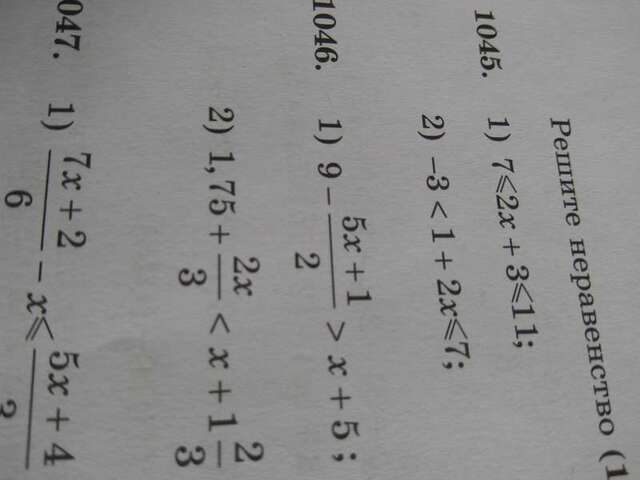 Решите неравенство (1
1045. 1) 7⩽2x + 3⩽11;
2) –3 < 1 + 2x⩽7;
1046. 1) 9 – (5x + 1)/2 > x + 5;
2) 1,75 + 2x/3 < x + 1 2/3
047. 1) (7x + 2)/6 – x⩽ (5x + 4)/